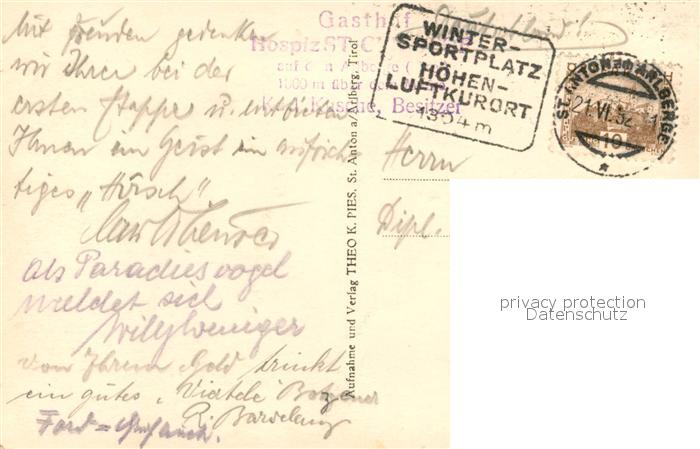 Mit Freuden gedenken
wir Ihrer bei der
ersten Etappe u. entbieten
Ihnen im Geist ein aufrich-
tiges „Hörsch"
Als Paradiesvogel
meldet sich
Willy Weniger
von Ihrem Geld trinkt
ein gutes „Viertele" Botzener
Ford =
Gasthof
Hospiz ST. C
auf dem Arlberg
1800 m über dem
Besitzer
WINTER-
SPORTPLATZ
HÖHEN-
LUFTKURORT
1304 m
ST. ANTON AM ARLBERGE
21.VI.32
10
Herrn
Dipl.
Aufnahme und Verlag THEO K. PIES, St. Anton a/Arlberg, Tirol
privacy protection
Datenschutz